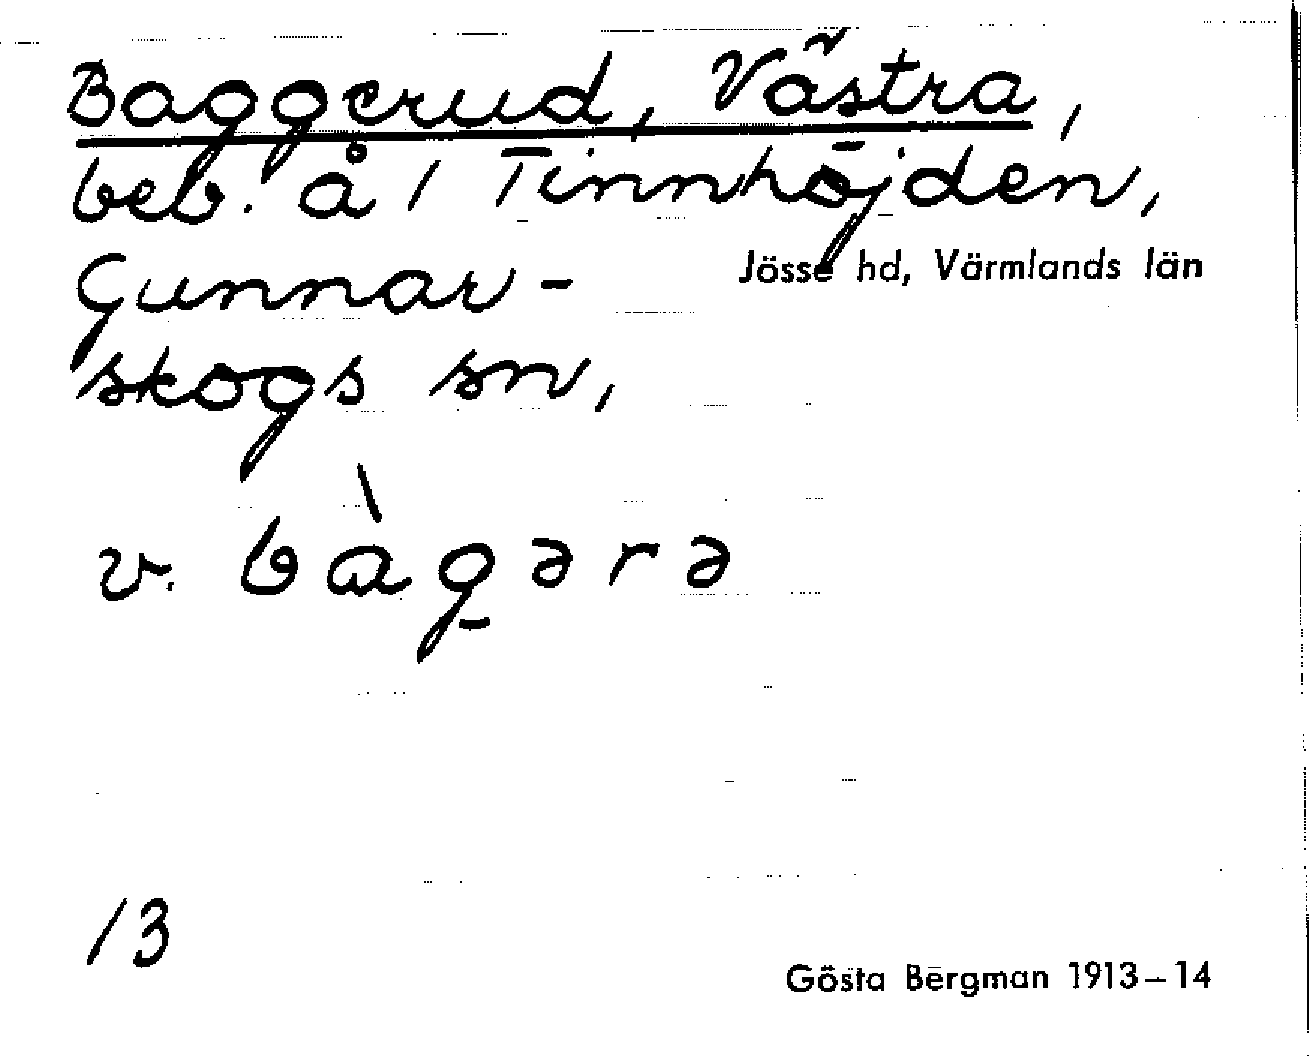 Baggerud, Västra,
beb. å 1 Tinnhöjden,
Gunnar-
Jösse hd, Värmlands län
skogs sn,
v. bàgərə
13
Gösta Bergman 1913–14